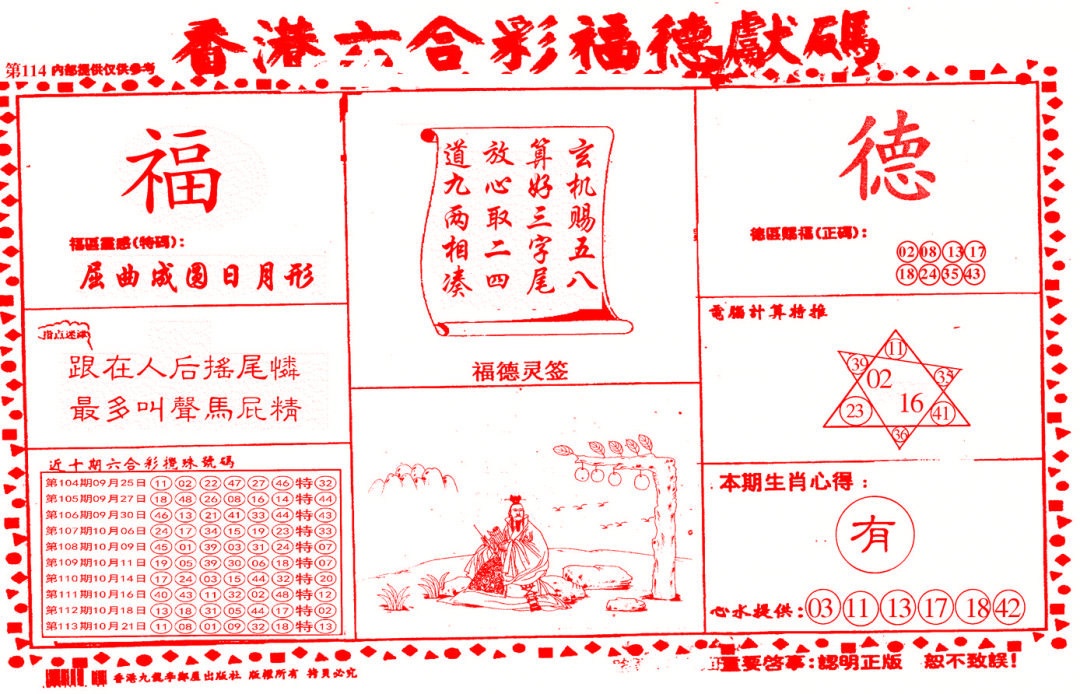 香港六合彩福德獻碼
第114 内部提供仅供参考
福
福區靈感(特碼):
屈曲成圆日月形
指点迷津
跟在人后搖尾憐
最多叫聲馬屁精
近十期六合彩攪珠號碼
第104期09月25日 11 02 22 47 27 46 特 32
第105期09月27日 18 48 26 08 16 14 特 44
第106期09月30日 46 13 21 41 33 44 特 43
第107期10月06日 24 17 34 15 19 23 特 33
第108期10月09日 45 01 39 03 31 24 特 07
第109期10月11日 19 05 39 30 06 18 特 07
第110期10月14日 17 24 03 15 44 32 特 20
第111期10月16日 40 43 11 32 02 48 特 12
第112期10月18日 13 18 31 05 44 17 特 02
第113期10月21日 11 08 01 09 32 18 特 13
玄机赐五八
算好三字尾
放心取二四
道九两相凑
福德灵签
德
德區賜福(正碼):
02 08 13 17
18 24 35 43
電腦計算特推
11
39 02 35
23 16 41
36
本期生肖心得:
有
心水提供:03 11 13 17 18 42
香港九龍李鄭屋出版社 版權所有 拷貝必究
重要啓事:認明正版 恕不致誤!